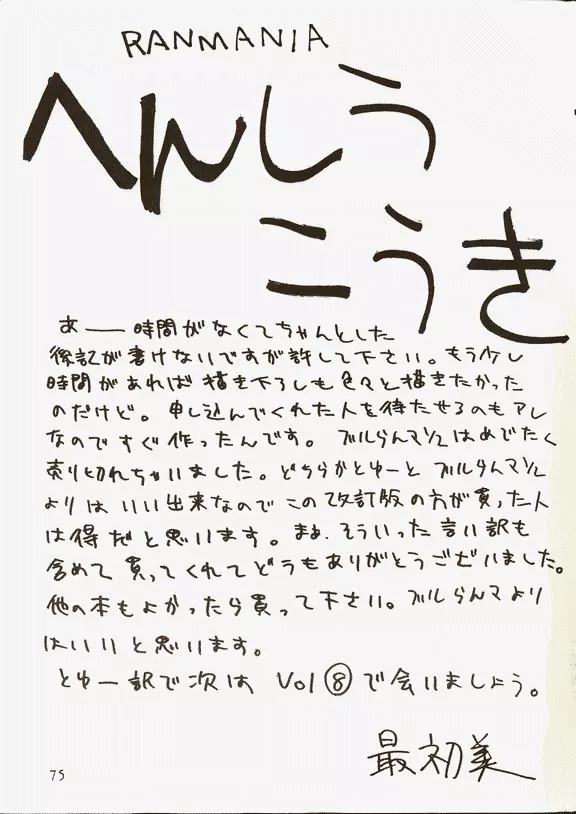 RANMANIA
へんしう
こうき
あ——時間がなくてちゃんとした
後記が書けないですが許して下さい。もう少し
時間があれば描き下ろしも色々と描きたかった
のだけど。申し込んでくれた人を待たせるのもアレ
なのですぐ作ったんです。ブルらんマ1/2はめでたく
売り切れちゃいました。どちらかとゆーとブルらんマ1/2
よりはいい出来なのでこの改訂版の方が買った人
は得だと思います。まぁ、そういった言い訳も
含めて買ってくれてどうもありがとうございました。
他の本もよかったら買って下さい。ブルらんマより
はいいと思います。
とゆー訳で次は Vol⑧で会いましょう。
最初美
75